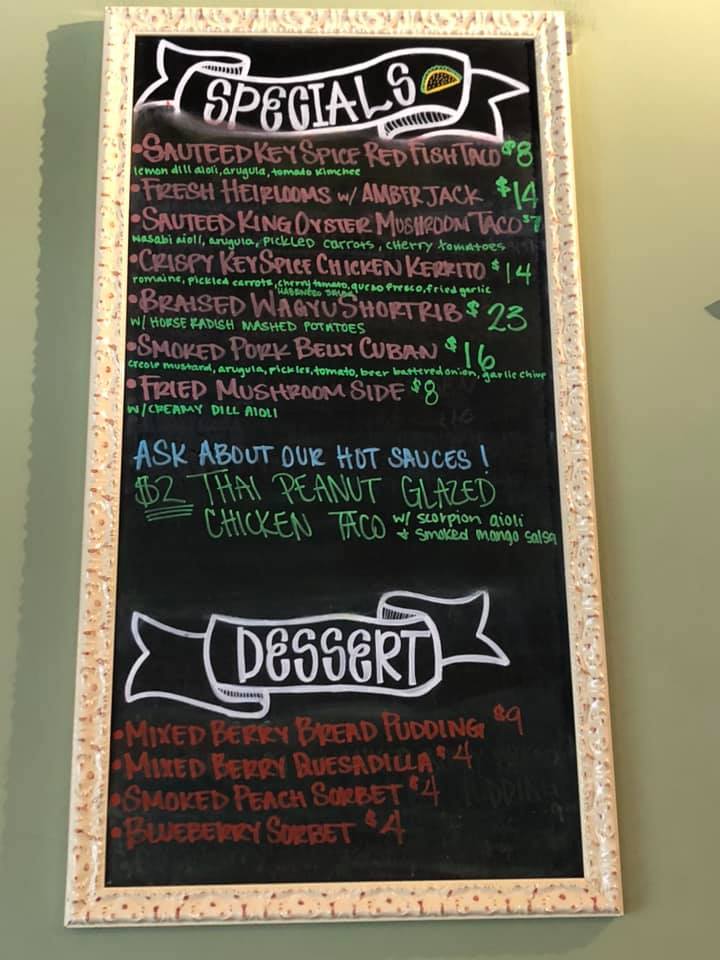 SPECIALS
•SAUTEED KEY SPICE RED FISH TACO $8
lemon dill aioli, arugula, tomato kimchee
•FRESH HEIRLOOMS w/ AMBERJACK $14
•SAUTEED KING OYSTER MUSHROOM TACO $7
wasabi aioli, arugula, PICKLED carrots, cherry tomatoes
•CRISPY KEY SPICE CHICKEN KERRITO $14
romaine, pickled carrots, cherry tomato, queso fresco, fried garlic
HABENERO SALSA
•BRAISED WAGYU SHORTRIB $23
W/ HORSE RADISH MASHED POTATOES
•SMOKED PORK BELLY CUBAN $16
creole mustard, arugula, pickles, tomato, beer battered onion, garlic chive
•FRIED MUSHROOM SIDE $8
W/ CREAMY DILL AIOLI
ASK ABOUT OUR HOT SAUCES!
$2 THAI PEANUT GLAZED
CHICKEN TACO w/ scorpion aioli
+ smoked mango salsa
DESSERT
•MIXED BERRY BREAD PUDDING $9
•MIXED BERRY QUESADILLA $4
•SMOKED PEACH SORBET $4
•BLUEBERRY SORBET $4